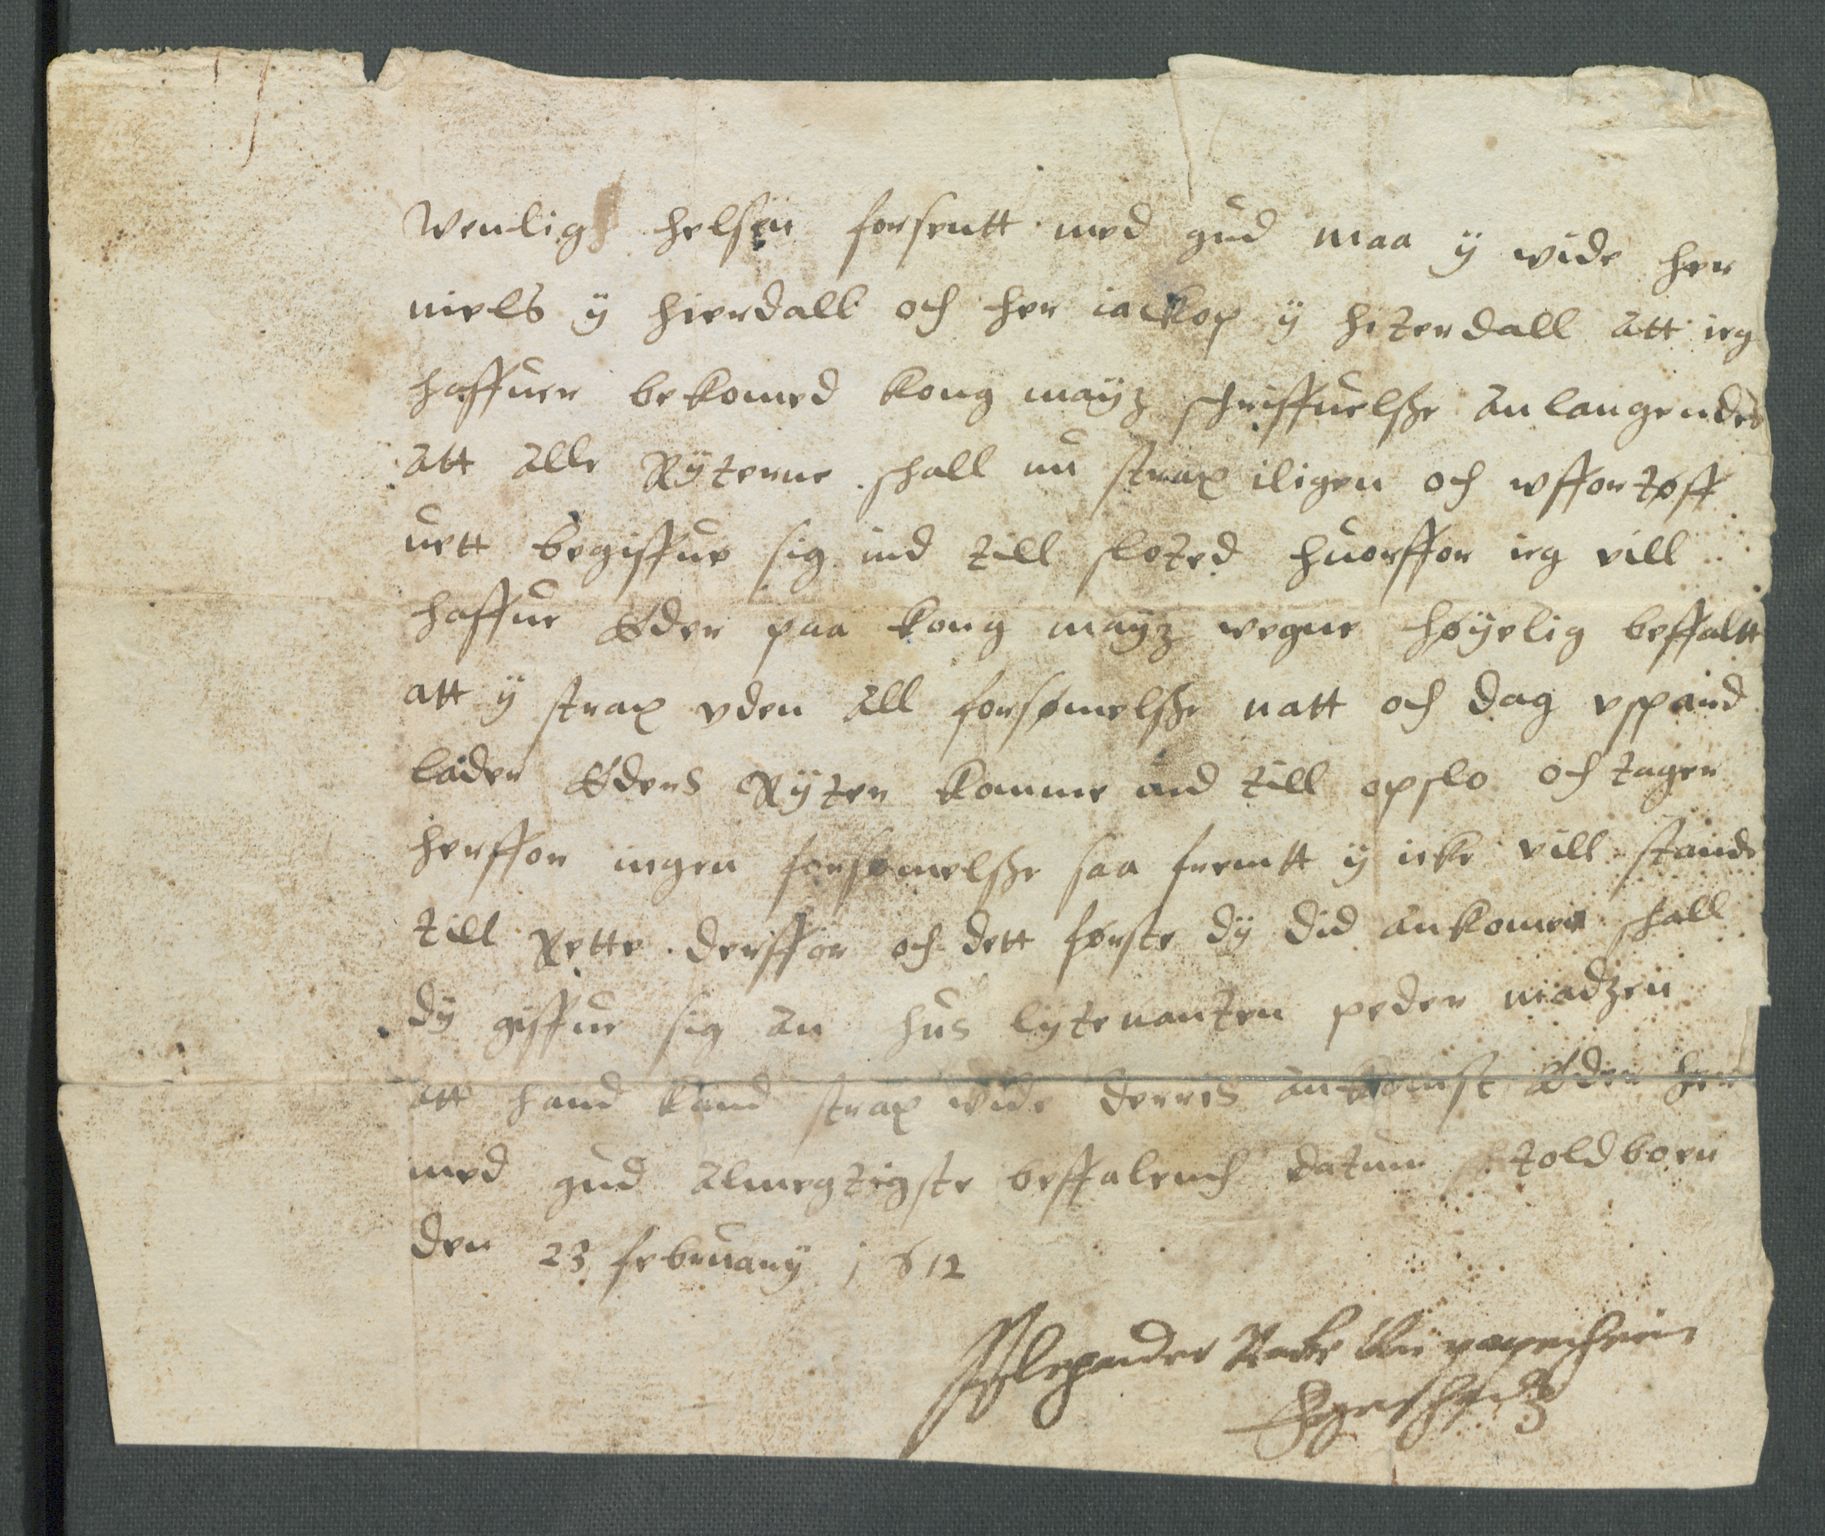 Wenligh helsen forsentt med gud maa ÿ wide her
niels ÿ hierdall och her iackop ÿ hiterdall att ieg
haffuer bekomed kong mayz schriffuelsze anlangendes
att alle Rÿterne schall nu strax iligen och wffortøff
uett begiffue sig ind till sloted huorffor ieg vill
haffue Eder paa kong mayz wegne høÿelig beffaltt
att ÿ strax vden all forsømelsze natt och dag vspaud
lader Eders Rÿter komme ind till opslo och tager
herffor ingen forsømelsze saa fremtt ÿ icke vill stande
till Rette derffor och dett første dÿ did ankomer schall
dÿ giffue sig an hus lÿtenanten peder madzen
att hand kand strax wide derris ankomst Eder her
med gud almegtigste beffalench datum toldboen
den 23 februarÿ 1612
Alexander